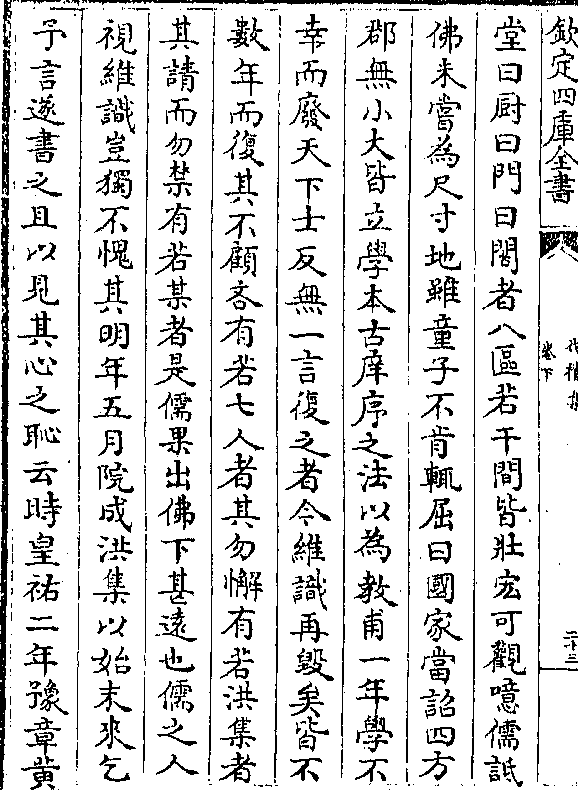 欽定四庫全書
卷下
二十三
堂曰厨曰門曰閣者八區若干間皆壯宏可觀噫儒詆
佛未嘗為尺寸地雖童子不肯輒屈曰國家當詔四方
郡無小大皆立學本古庠序之法以為教甫一年學不
幸而廢天下士反無一言復之者今維識再毁矣皆不
數年而復其不顧吝有若七人者其勿懈有若洪集者
其請而勿禁有若某者是儒果出佛下甚遠也儒之人
視維識豈獨不愧其明年五月院成洪集以始末來乞
予言遂書之且以見其心之恥云時皇祐二年豫章黄